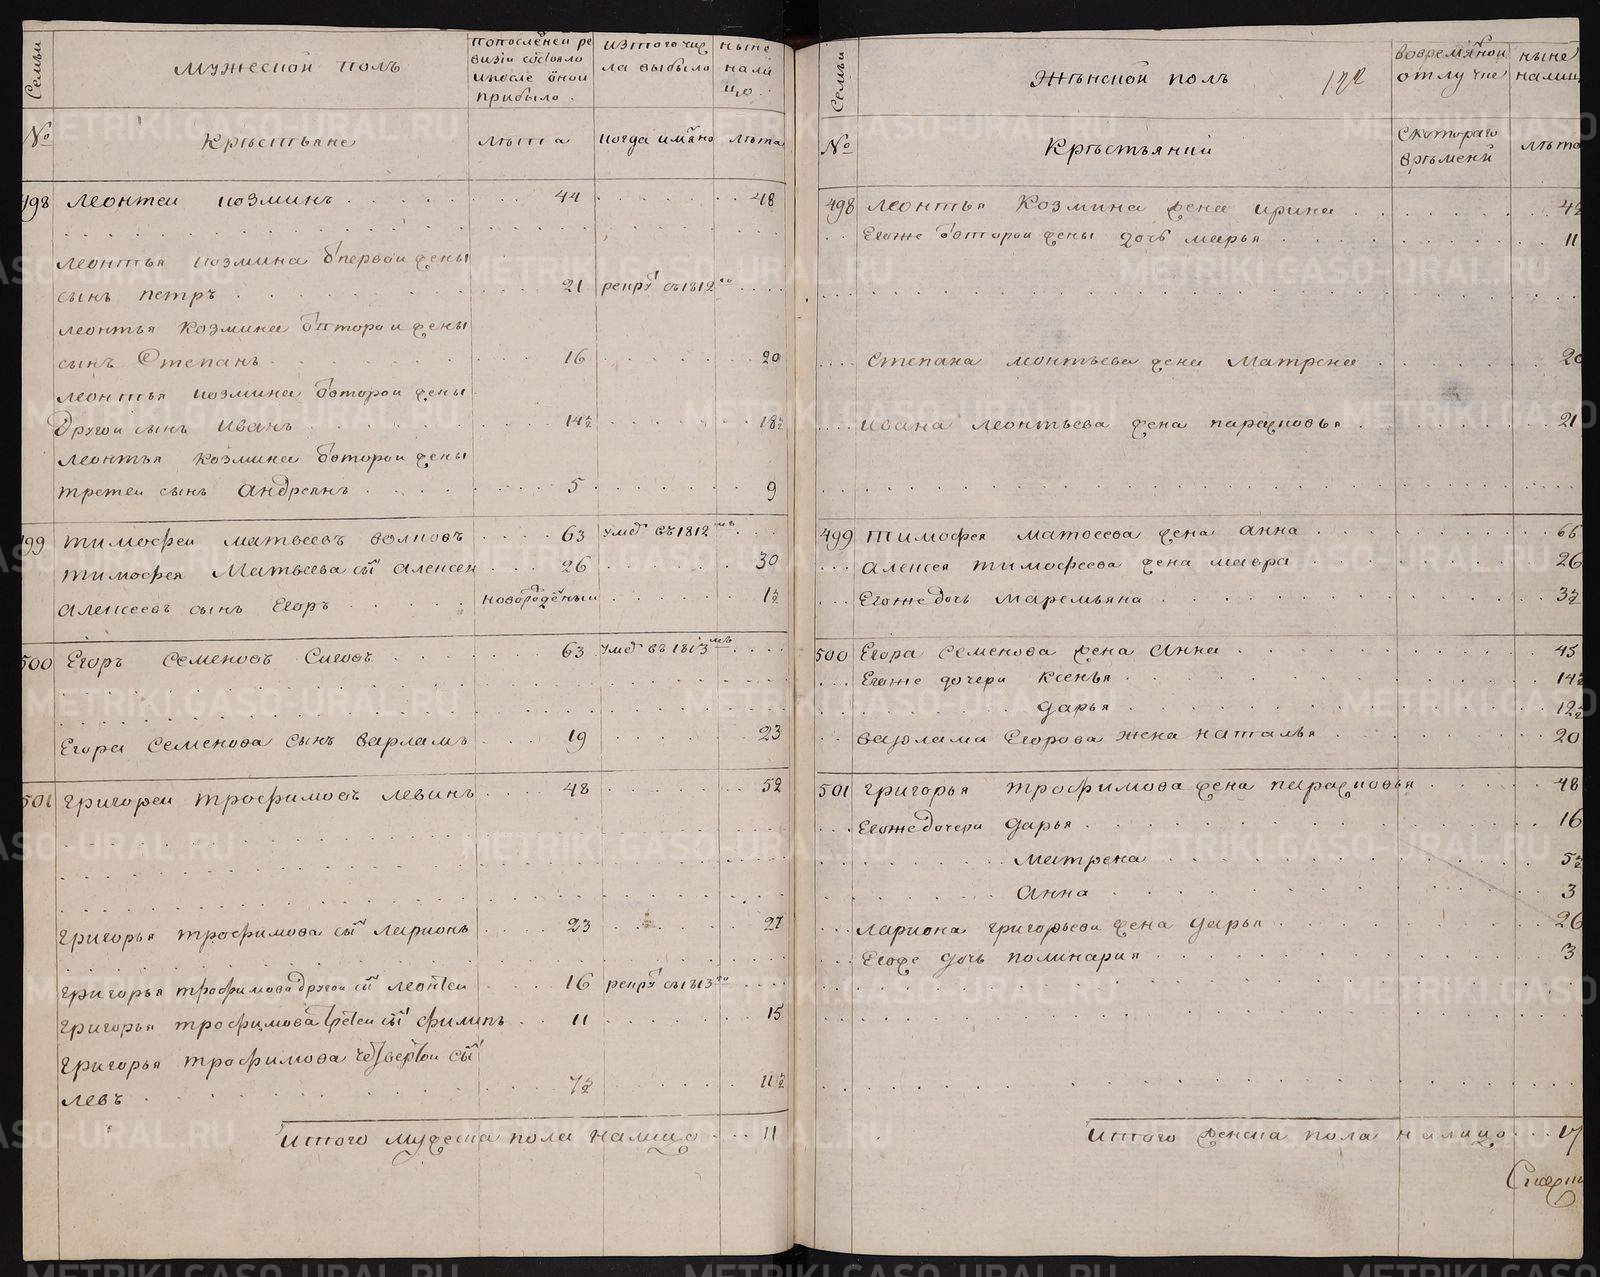 Семьи
Мужеской полъ
попоследней ре
визіи состояло
ипосле оной
прибыло.
изтого чис
ла выбыло
ныне
нали
цо.
№
Крѣстьяне
лѣта
когда имяно
лѣта
498 леонтеи козминъ 44 48
леонтья козмина отпервои жены
сынъ петръ 21 рекру съ1812го
леонтья козмина отвторои жены
сынъ Степанъ 16 20
леонтья козмина отвторои жены
другои сынъ иванъ 14½ 18½
леонтья козмина отвторои жены
третеи сынъ андреянъ 5 9
499 тимофеи матвеевъ волковъ 63 умеръ въ1812мъ
тимофея Матвеева сынъ алексеи 26 30
алексеевъ сынъ Егоръ новорожденыи 1½
500 Егоръ семеновъ Сиговъ 63 умеръ въ1813мъ
Егора семенова сынъ варламъ 19 23
501 григореи трофимовъ левинъ 48 52
григорья трофимова сынъ ларионъ 23 27
григорья трофимова другои сынъ леонтеи 16 рекру съ1813го
григорья трофимова третеи сынъ филипъ 11 15
григорья трофимова четвертои сынъ
левъ 7½ 11½
итого мужеска пола налицо 11
Семьи
Жѣнской полъ
вовремяной
отлучке
ныне
налиц
№
Крѣстьянки
скотораго
врѣмени
лѣта
498 леонтья козмина жена ирина 42
Егоже отвторои жены дочь марья 11
степана леонтьева жена Матрена 20
ивана леонтьева жена парасковья 21
499 тимофея матвеева жена анна 66
алексея тимофеева жена мавра 26
Егоже дочь маремьяна 3½
500 Егора семенова жена анна 45
Егоже дочери ксенья 14½
дарья 12½
варлама Егорова жена наталья 20
501 григорья трофимова жена парасковья 48
Егоже дочери дарья 16
матрена 5½
анна 3
лариона григорьева жена дарья 26
Егоже дочь полинария 3
итого женска пола налицо 17
METRIKI.GASO-URAL.RU